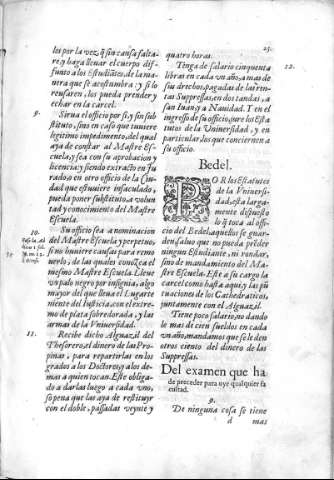 25.
les por la vez, q̃ sin causa falta-
re, y haga lleuar el cuerpo dif-
funto a los Estudiãtes, de la ma-
nera que se acostumbra: y si lo
reusaren, los pueda prender, y
echar en la carcel.
9.
Sirua el officio por si, y sin sub
stituto, sino en caso que tuuiere
legitimo impedimento, del qual
aya de constar al Mastre Es-
cuela, y sea con su aprobacion y
licencia, y siendo extracto en Ju-
rado, o en otro officio de la Ciu-
dad que estuuiere insaculado,
pueda poner substituto, a volun
tad y conocimiento del Mastre
Escuela.
10.
Su officio sea a nominacion
del Mastre Escuela, y perpetuo,
si no huuiere causas para remo
uerlo, de las quales conozca el
mismo Mastre Escuela. Lleue
vn palo negro por insignia, algo
mayor del que lleua el Lugarte
niente del Iusticia, con el estre-
mo de plata sobredorada, y las
armas de la Vniuersidad.
11.
Recibe dicho Alguazil del
Thesorero, el dinero de las Pro-
pinas, para repartirlas en los
grados a los Doctores, y a los de-
mas a quien tocan. Este obliga-
do a darlas luego a cada vno,
so pena que las aya de restituyr
con el doble, passadas veynte y
quatro horas.
12.
Tẽga de salario cinquenta
libras en cada vn año, a mas de
sus drechos, pagadas de las ren-
tas Suppressas, en dos tandas, a
san Iuan, y a Nauidad. Y en el
ingresso de su officio, jure los Esta
tutos de la Vniuersidad, y en
particular los que conciernen a
su officio.
Bedel.
POR los Estatutos
de la Vniuersi-
dad, esta larga-
mente dispuesto
lo q̃ toca al offi-
cio del Bedel, aquellos se guar-
den, saluo que no pueda prẽder
ningun Estudiante, ni rondar,
sino de mandamiento del Mas-
tre Escuela. Este a su cargo la
carcel como hasta aqui, y las pũ
tuaciones de los Cathedraticos,
juntamente con el Alguazil.
Tiene poco salario, no dando
le mas de cien sueldos en cada
vn año, mandamos que se le den
otros ciento del dinero de las
Suppressas.
Del examen que ha
de preceder para oyr qualquier fa
cultad.
9.
De ninguna cosa se tiene
d mas